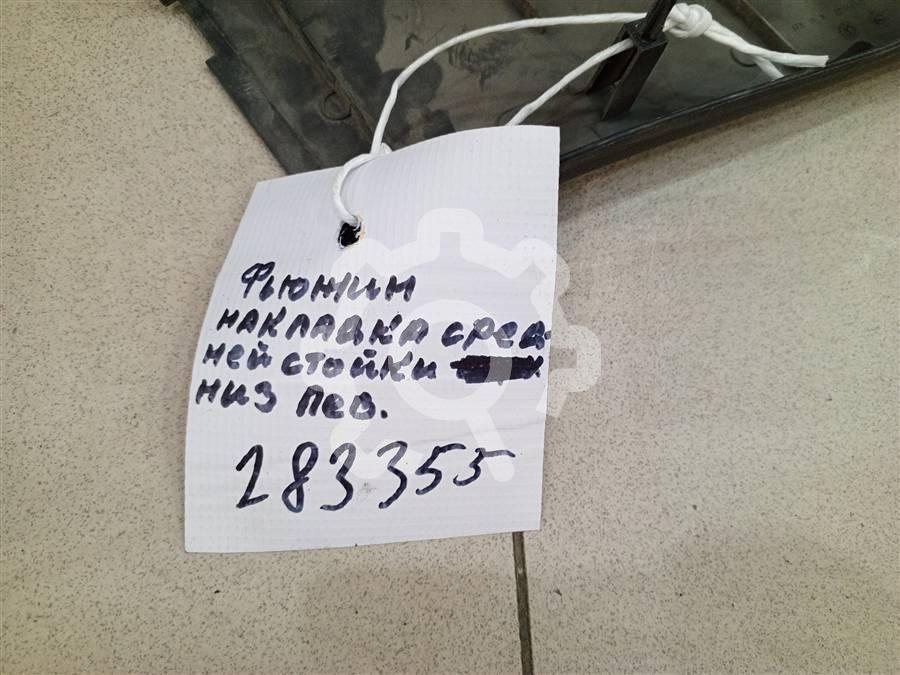 Фьюжин
накладка сред-
ней стойки
низ лев.
283355